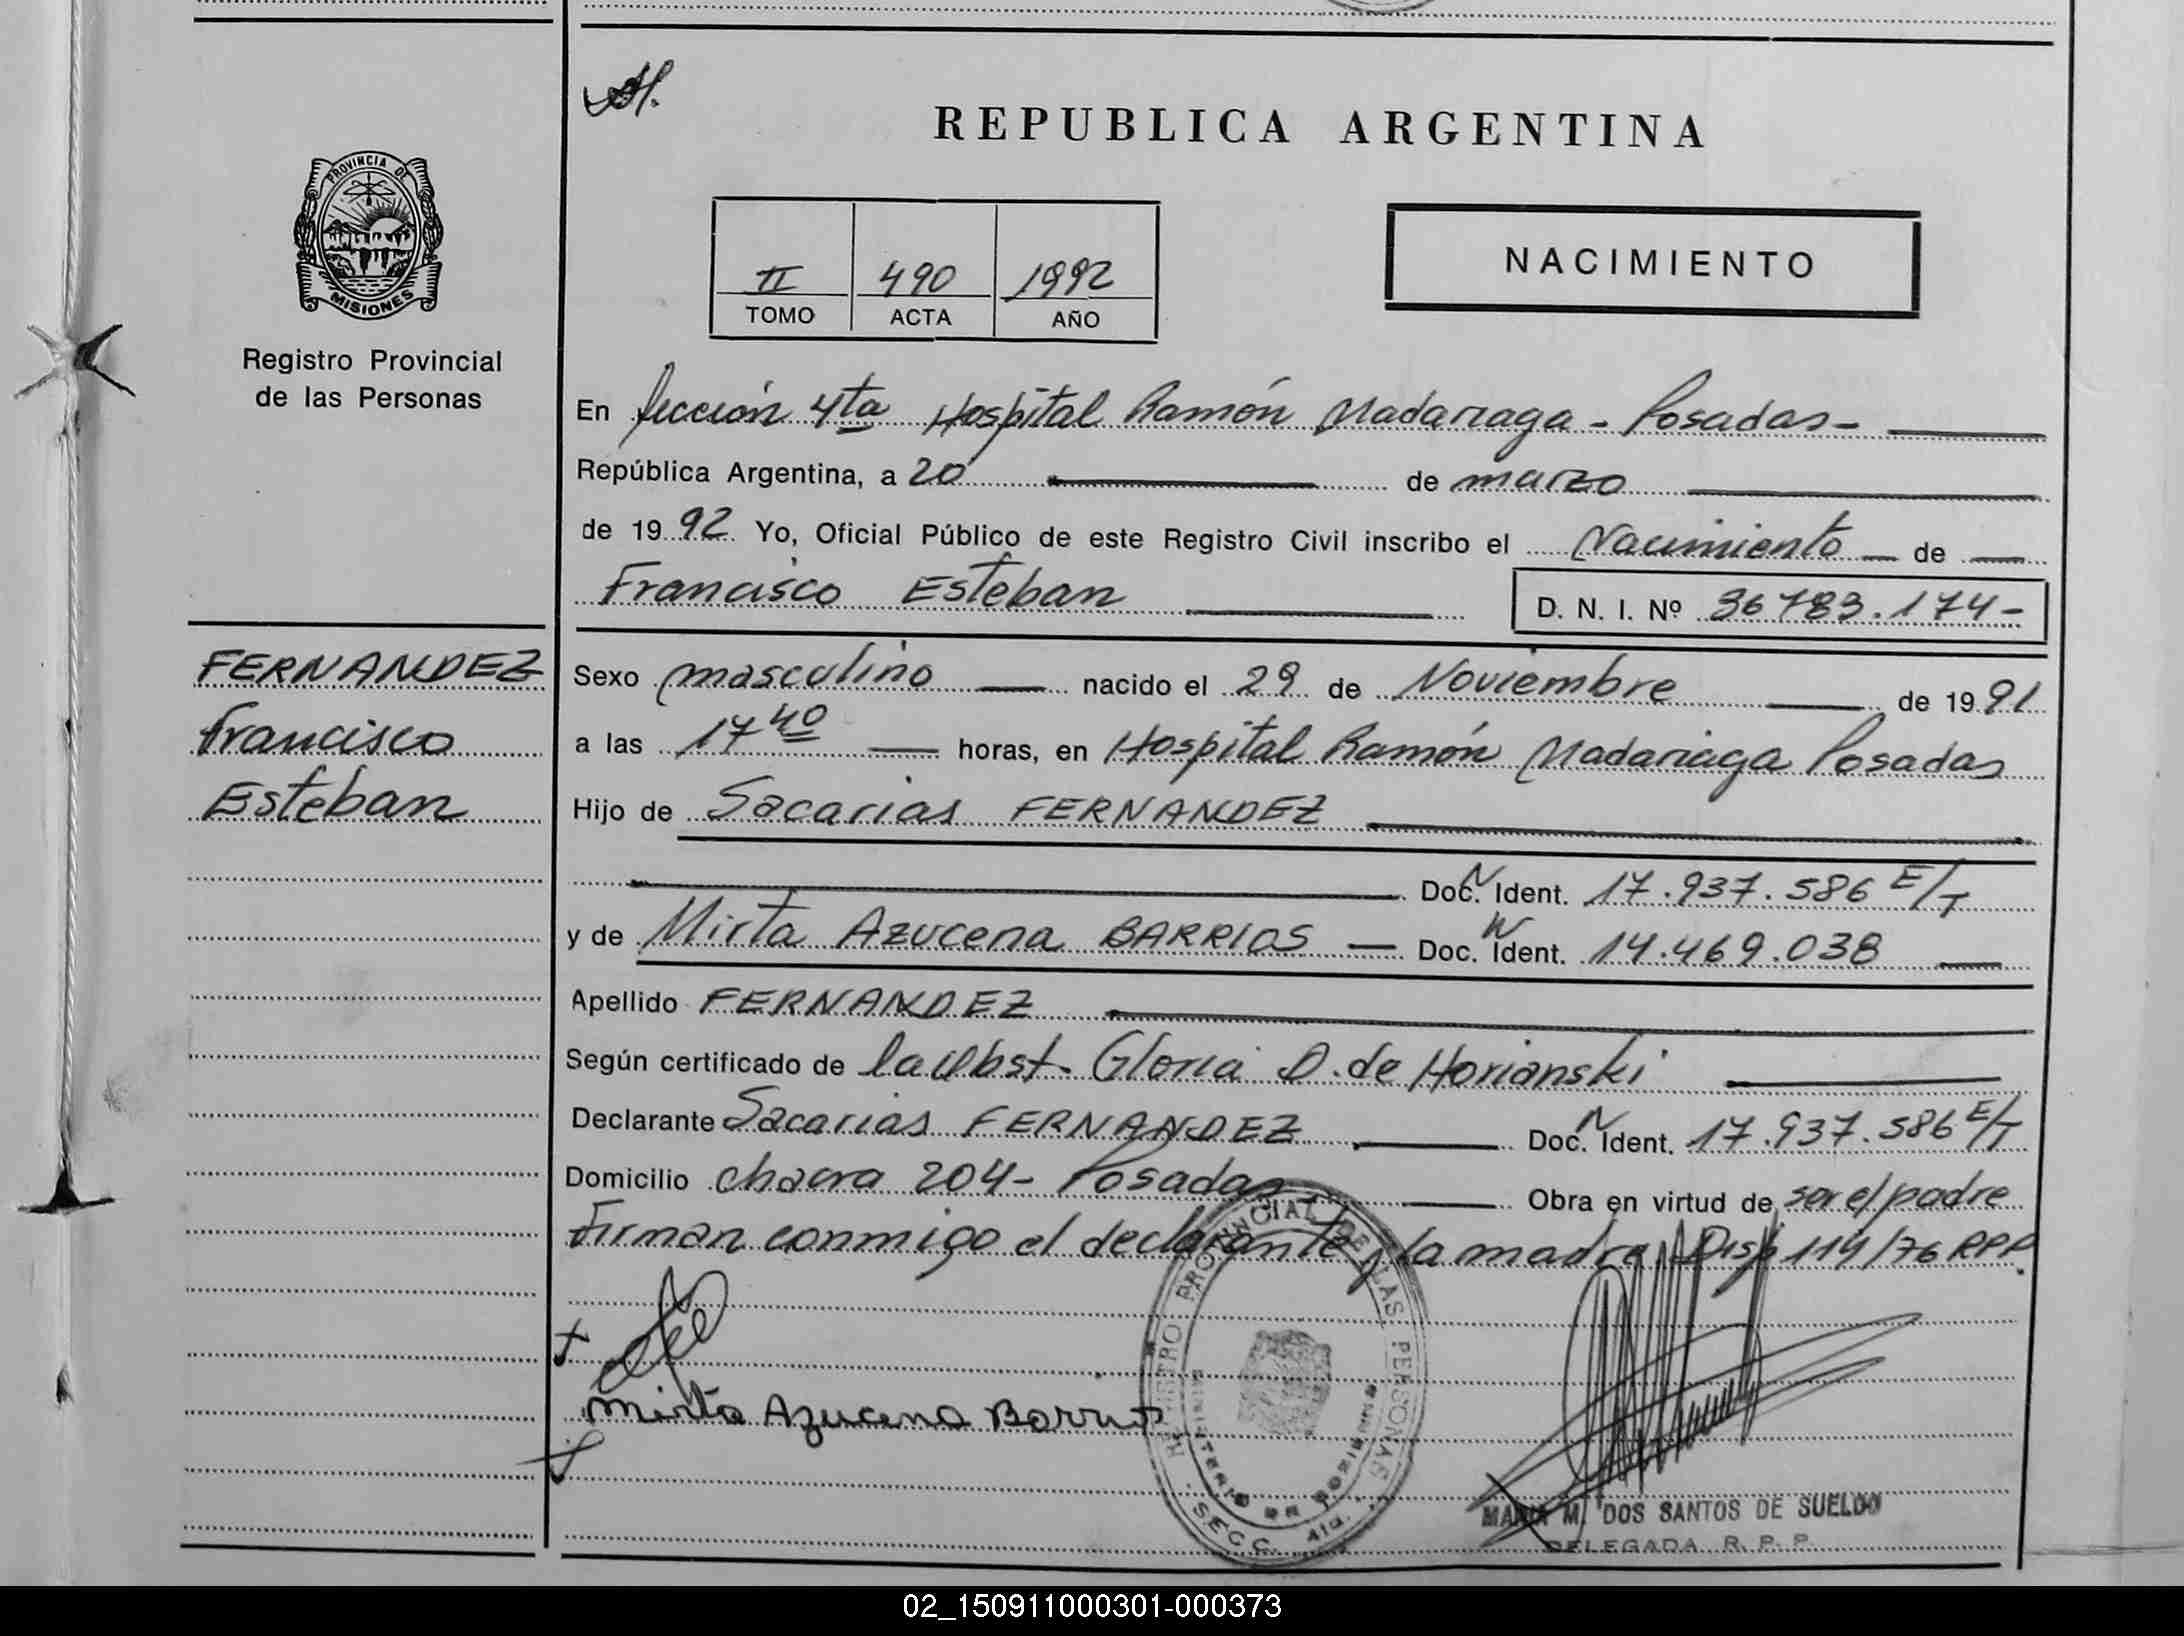 REPUBLICA ARGENTINA
PROVINCIA DE
MISIONES
Registro Provincial
de las Personas
II 490 1992
TOMO ACTA AÑO
NACIMIENTO
En Sección 4ta Hospital Ramón Madariaga - Posadas-
República Argentina, a 20 de marzo
de 1992. Yo, Oficial Público de este Registro Civil inscribo el Nacimiento de
Francisco Esteban D. N. I. Nº 36783.174-
FERNANDEZ
Francisco
Esteban
Sexo masculino nacido el 29 de Noviembre de 1991
a las 17 40 horas, en Hospital Ramón Madariaga Posadas
Hijo de Sacarias FERNANDEZ
Doc. N Ident. 17.937.586 E/T
y de Mirta Azucena BARRIOS Doc. N Ident. 14.469.038
Apellido FERNANDEZ
Según certificado de la Obst. Gloria D. de Horianski
Declarante Sacarias FERNANDEZ Doc. N Ident. 17.937.586 E/T
Domicilio chacra 204- Posadas Obra en virtud de ser el padre
Firman conmigo el declarante y la madre. Disp 114/76 RPP.
Mirta Azucena Barrios
REGISTRO PROVINCIAL DE LAS PERSONAS
SECC. 4ta.
MARIA M. DOS SANTOS DE SUELDO
DELEGADA R. P. P.
02_150911000301-000373